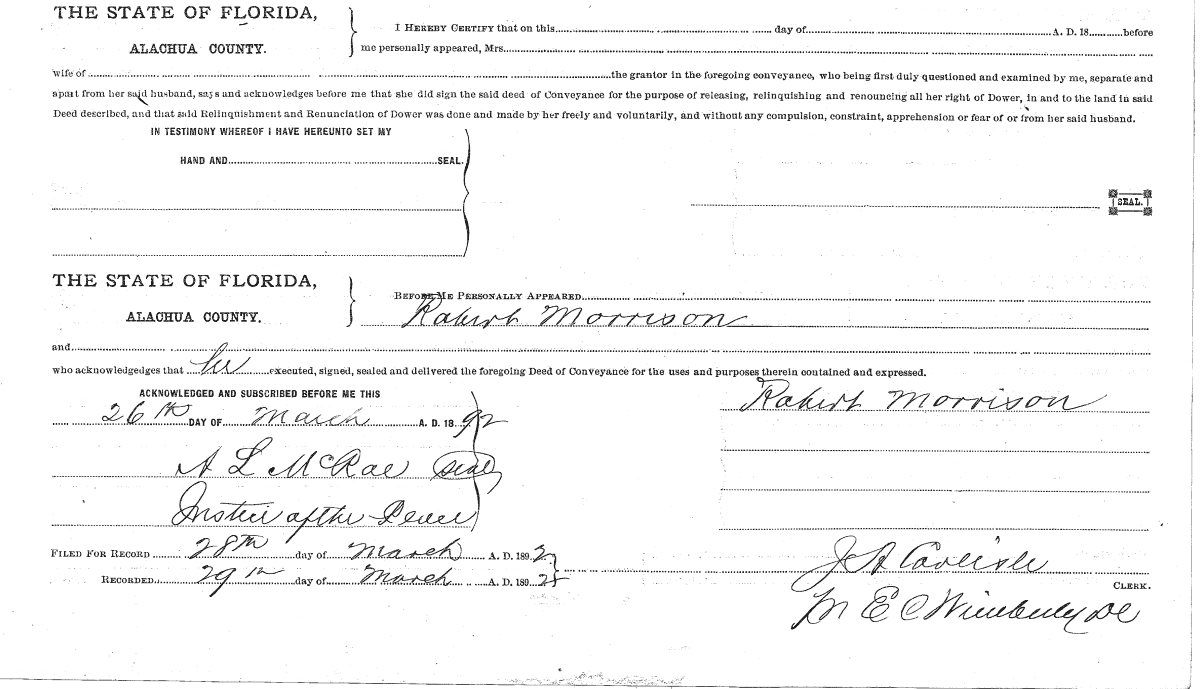 THE STATE OF FLORIDA,
ALACHUA COUNTY.
I HEREBY CERTIFY that on this day of A. D. 18 before
me personally appeared, Mrs.
wife of the grantor in the foregoing conveyance, who being first duly questioned and examined by me, separate and
apart from her said husband, says and acknowledges before me that she did sign the said deed of Conveyance for the purpose of releasing, relinquishing and renouncing all her right of Dower, in and to the land in said
Deed described, and that said Relinquishment and Renunciation of Dower was done and made by her freely and voluntarily, and without any compulsion, constraint, apprehension or fear of or from her said husband.
IN TESTIMONY WHEREOF I HAVE HEREUNTO SET MY
HAND AND SEAL.
SEAL.
THE STATE OF FLORIDA,
ALACHUA COUNTY.
BEFORE ME PERSONALLY APPEARED
Robert Morrison
and
who acknowledgedges that he executed, signed, sealed and delivered the foregoing Deed of Conveyance for the uses and purposes therein contained and expressed.
ACKNOWLEDGED AND SUBSCRIBED BEFORE ME THIS
26th DAY OF March A. D. 1892
Robert Morrison
A L McRae seal
Justice of the Peace
FILED FOR RECORD 28th day of March A. D. 1892
RECORDED 29th day of March A. D. 1892
J A Carlisle
CLERK.
M E C Wimberly DC